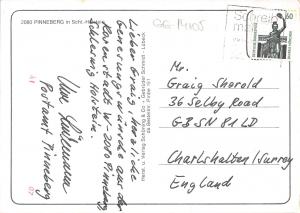 2080 PINNEBERG in Schl.-Holstein
Lieber Graig, Herzliche
Genesungswünsche aus der
Rosenstadt W-2080 Pinneberg
Schleswig Holstein.
Uwe
Postamt Pinneberg
Herst. u. Verlag Schöning & Co + Gebrüder Schmidt - Lübeck
Schreib
mal
60
Mr.
Graig Sherold
36 Selby Road
GB SN 81LD
Charlshalten/Surrey
England